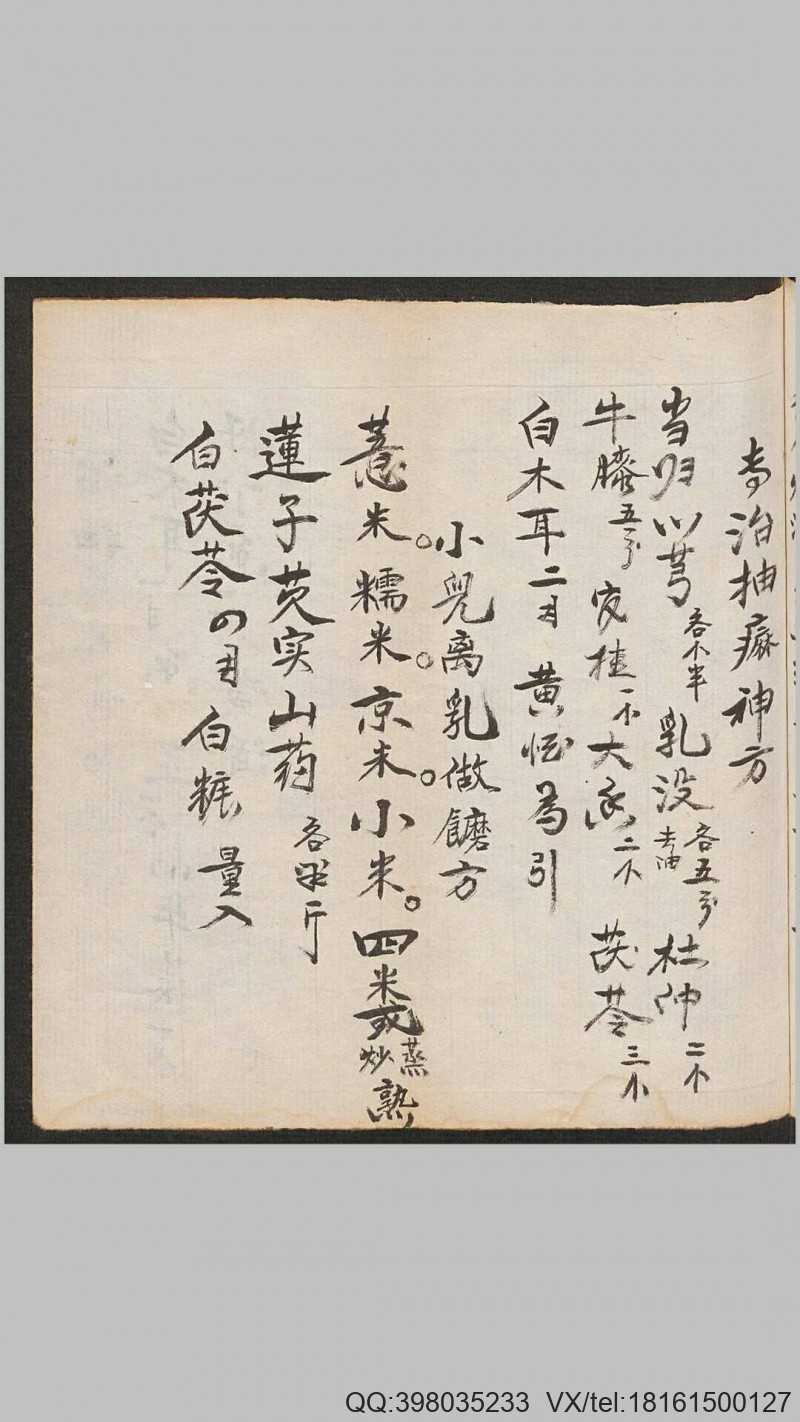 专治抽麻神方
当归川芎各个半 乳没去油各五分 杜仲二个
牛膝五分 皮桂一个 大二个 茯苓三个
白木耳二 黄酒为引
小兒离乳做饝方
薏米。糯米。京米。小米。四米或蒸炒熟
蓮子芡实山药各斤
白茯苓 白糖 量入
QQ:398035233 VX/tel:18161500127